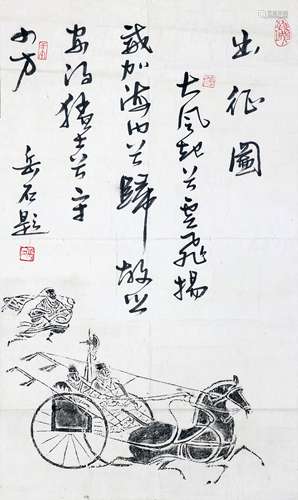 出征圖
大风起兮雲飛揚
威加海内兮歸故乡
安得猛士兮守
四方
岳石题